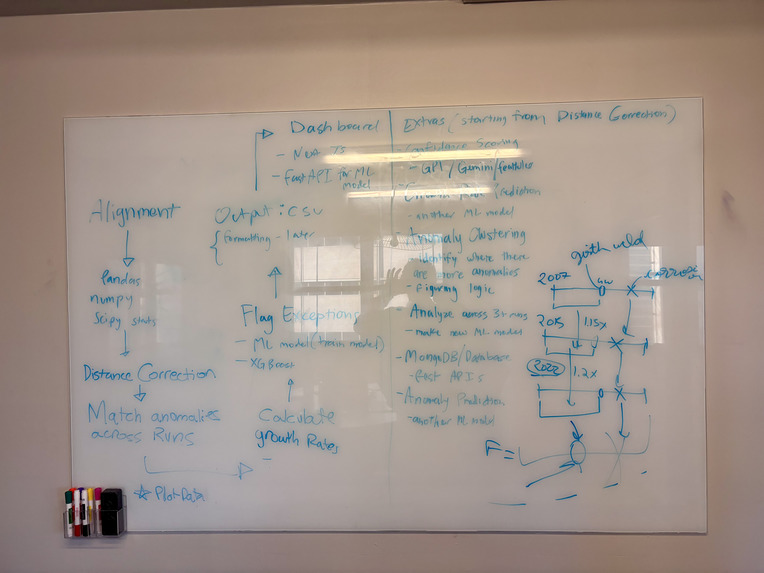 Alignment
Pandas
numpy
Scipy stats
Distance Correction
Match anomalies
across Runs
☆ Plot Data
Calculate
growth Rates
Flag Exceptions
- ML model (train model)
- XGBoost
Output: CSV
{ formatting - later
Dashboard
- FastAPI for ML
model
Extras (starting from Distance Correction)
- Confidence Scoring
- GPT / Gemini /
- another ML model
- Anomaly Clustering
identify where there
are more anomalies
- Figuring logic
- Analyze across 3+ runs
- make new ML model
- MongoDB/Database
- Rest API's
- Anomaly Prediction
- another ML model
girth weld
2007
GW
2015
1.15x
2022
1.2x
F=